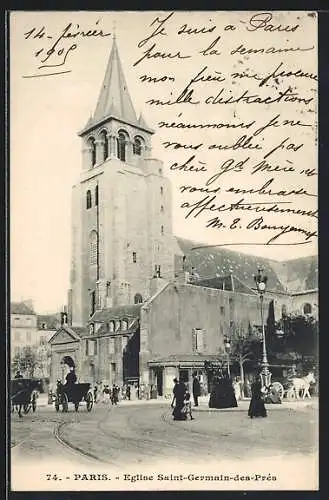 14 février
1905
Je suis a Paris
pour la semaine
mon frère me procure
mille distractions
néaumoins je ne
vous oublie pas
chère gd mère et
vous embrasse
affectueusement
M. E.
74. - PARIS. - Eglise Saint-Germain-des-Prés